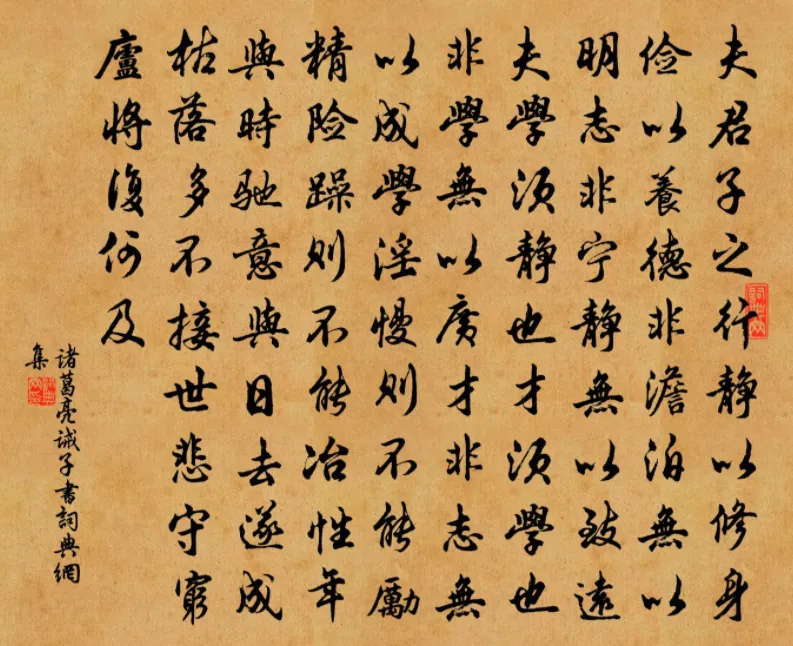 夫君子之行静以修身
俭以養德非澹泊無以
明志非宁静無以致遠
夫學须静也才须學也
非學無以廣才非志無
以成學淫慢则不能勵
精险躁则不能冶性年
與時驰意與日去遂成
枯落多不接世悲守窮
廬將復何及
诸葛亮诫子書詞典網
集